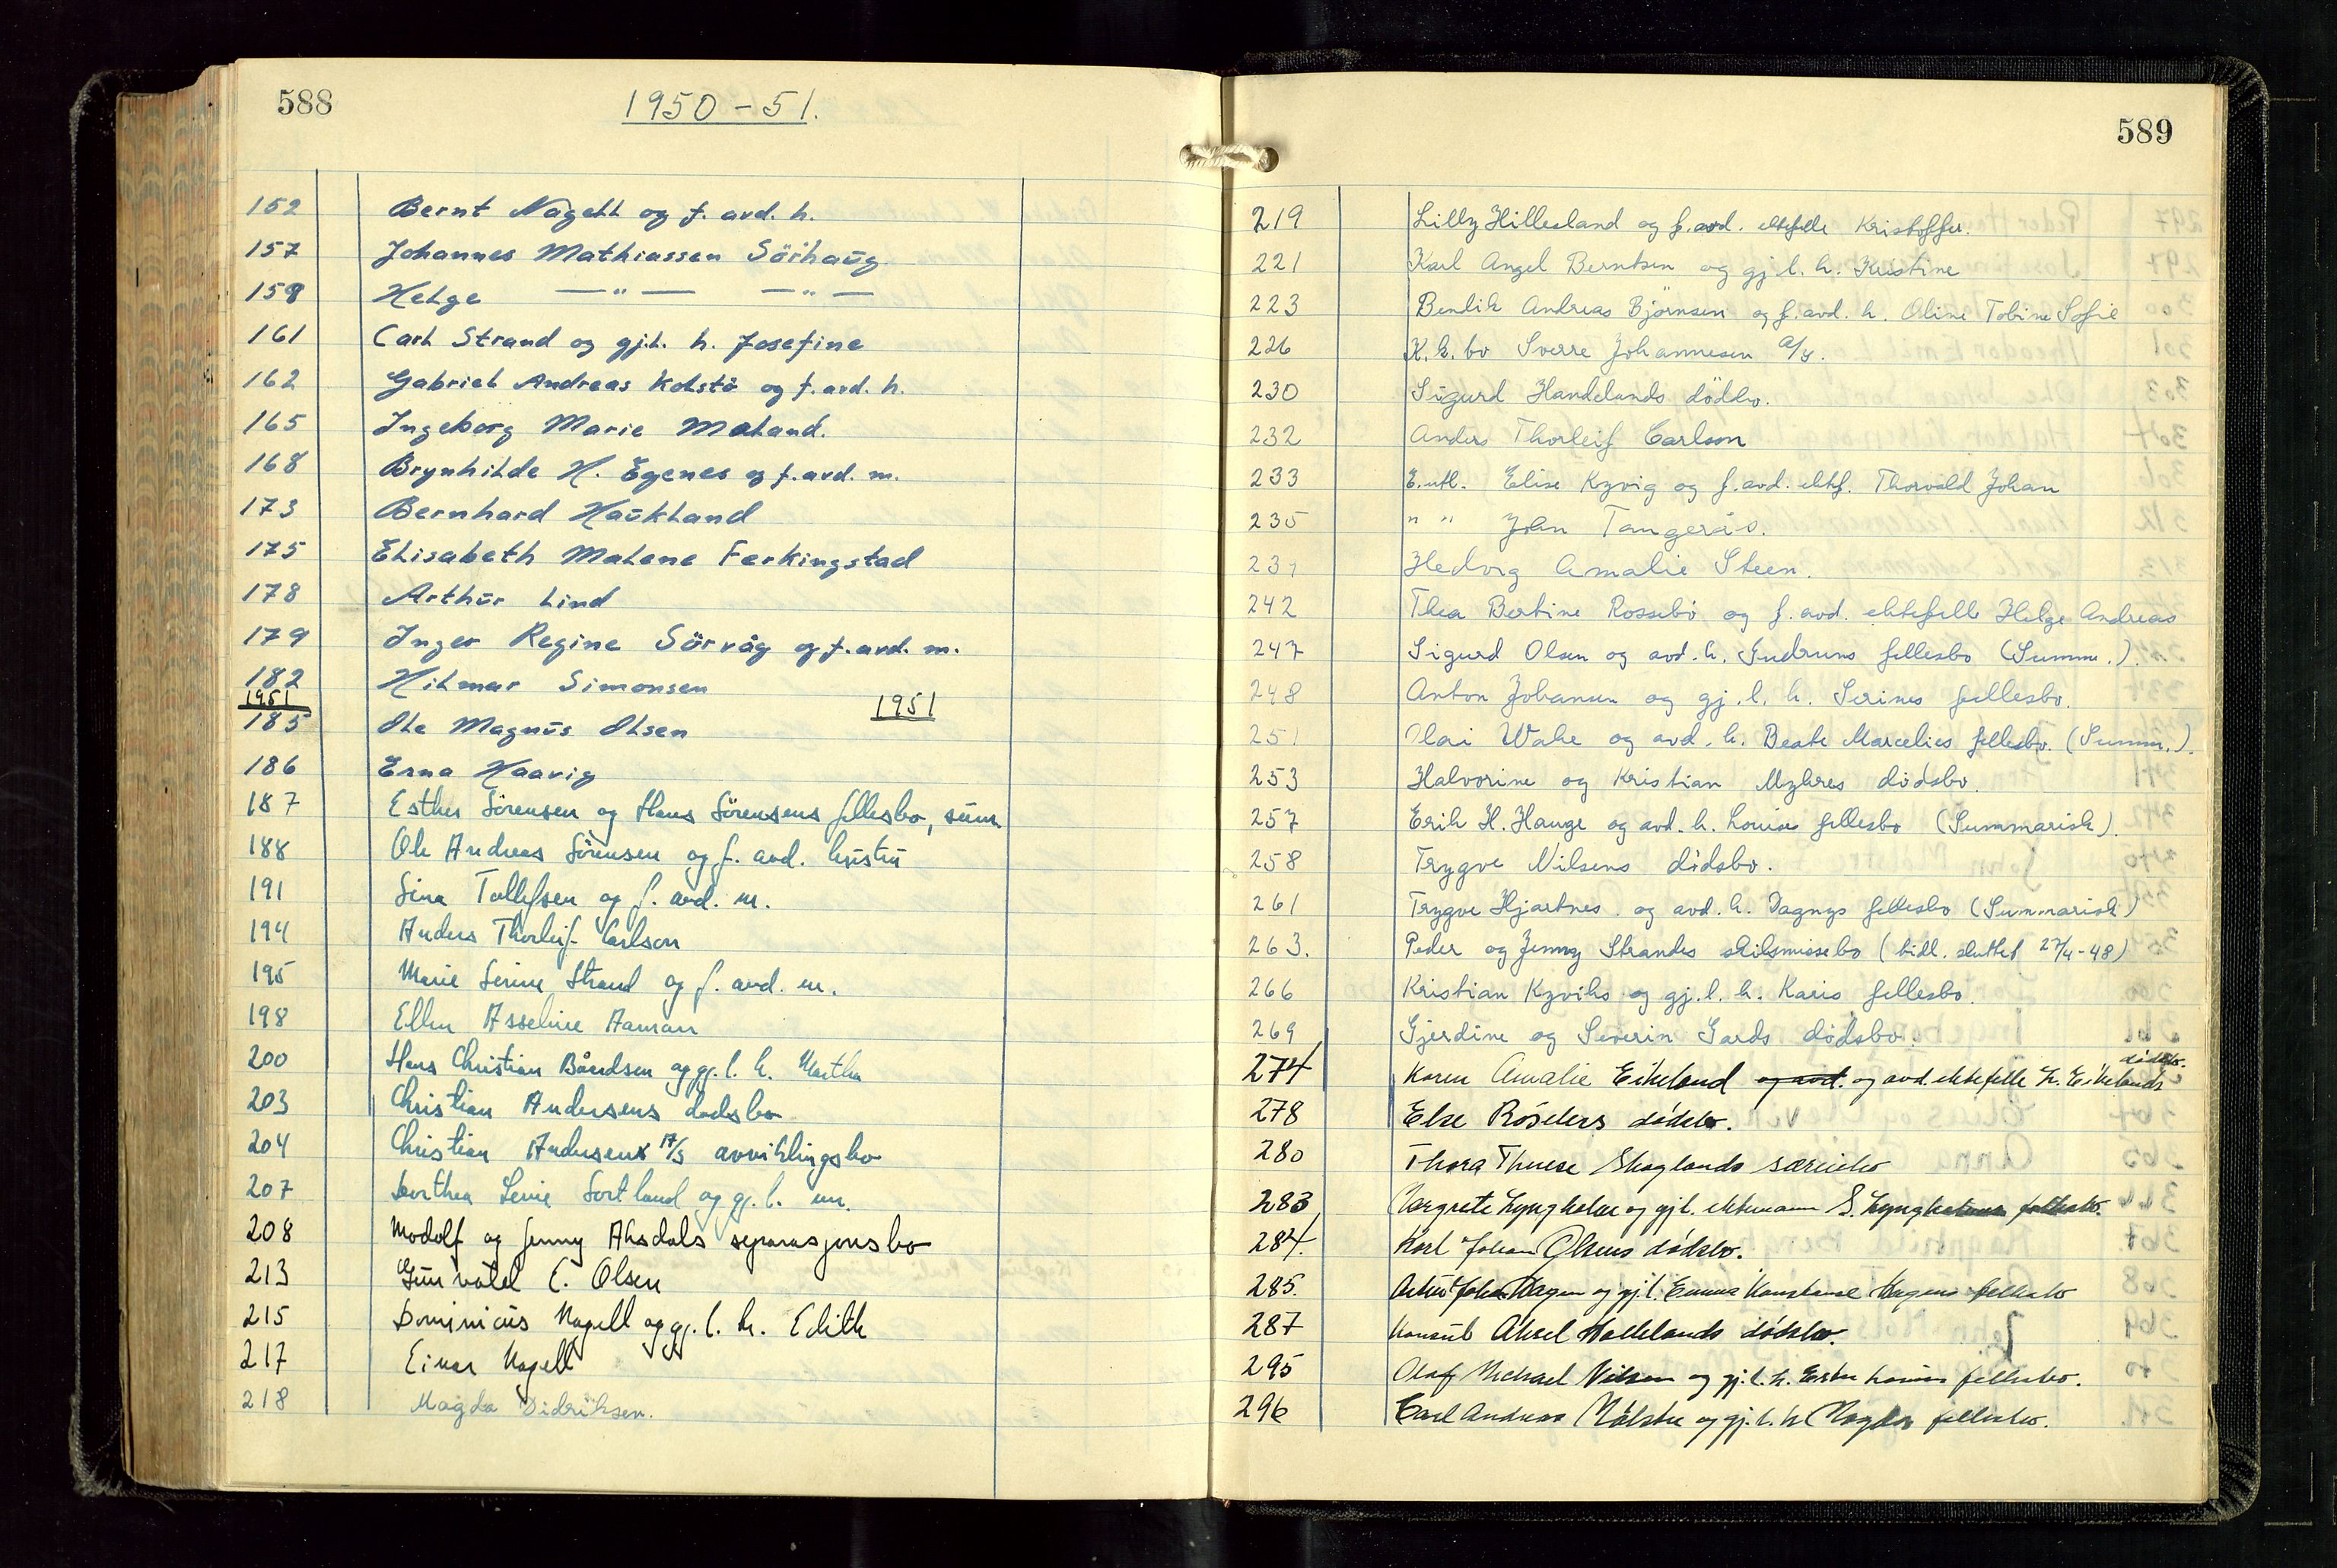 588
1950 – 51.
152 Bernt Nagell og f. avd. h.
157 Johannes Mathiassen Sörhaug
159 Helge — " — — " —
161 Carl Strand og gj.l. h. Josefine
162 Gabriel Andreas Kolstö og f. avd. h.
165 Ingeborg Marie Maland.
168 Brynhilde H. Egenes og f. avd. m.
173 Bernhard Haukland
175 Elisabeth Malene Ferkingstad
178 Arthur Lind
179 Inger Regine Sörvåg og f. avd. m.
182 Hilmar Simonsen
1951 1951
185 Ole Magnus Olsen
186 Erna Haavig
187 Esther Sörensen og Hans Sörensens fellesbo, sum.
188 Ole Andreas Sörensen og f. avd. hustru
191 Sina Tollefsen og f. avd. m.
194 Anders Thorleif Carlson
195 Marie Serine Strand og f. avd. m.
198 Ellen Asseline Aaman
200 Hans Christian Bårdsen og gj. l. h. Martha
203 Christian Andersens dødsbo
204 Christian Andersens A/S avviklingsbo
207 Dorthea Serine Sortland og gj. l. m.
208 Modolf og Jenny Alsdals separasjonsbo
213 Gunvald C. Olsen
215 Dominicus Nagell og gj. l. h. Edith
217 Einar Nagell
218 Magda Didriksen.
589
219 Lilly Hillesland og f. avd. ektefelle Kristoffer.
221 Karl Angel Berntsen og gj. l. h. Kristine
223 Bendik Andreas Björnsen og f. avd. h. Oline Tobine Sofie
226 K.k. bo Sverre Johannesen A/S.
230 Sigurd Handelands dödsbo.
232 Anders Thorleif Carlson
233 E.utl. Elise Kyvig og f. avd. ektf. Thorvald Johan
235 " " John Tangerås.
237 Hedvig Amalie Steen.
242 Thea Bertine Rossebö og f. avd. ektefelle Helge Andreas
247 Sigurd Olsen og avd. h. Gudruns fellesbo (Summ.).
248 Anton Johansen og gj. l. h. Serines fellesbo.
251 Olai Wake og avd. h. Beate Marcelies fellesbo. (Summ.).
253 Halvorine og Kristian Myhres dödsbo.
257 Erik H. Hauge og avd. h. Louises fellesbo (Summarisk).
258 Trygve Nilsens dödsbo.
261 Trygve Hjartnes og avd. h. Dagnys fellesbo (Summarisk)
263. Peder og Jenny Strandes skilsmissebo (tidl. sluttet 27/4-48)
266 Kristian Kyviks og gj. l. h. Karis fellesbo.
269 Gjerdine og Severin Gards dödsbo.
274 Karen Amalie Eikeland og avd. og avd. ektefelle H. Eikelands dödsbo.
278 Else Röselers dödsbo.
280 Thora Therese Skoglands særeiebo
283 Margrete Lyngholm og gj. l. ektemann S. Lyngholms fellesbo.
284. Karl Johan Olsens dödsbo.
285. Hagen og gj. l. Emma Konstanse Hagens fellesbo
287 Konsul Aksel Hallelands dödsbo.
295 Olaf Michael Nilsen og gj. l. h. Ester fellesbo.
296 Carl Andreas og gj. l. h. Magda fellesbo.